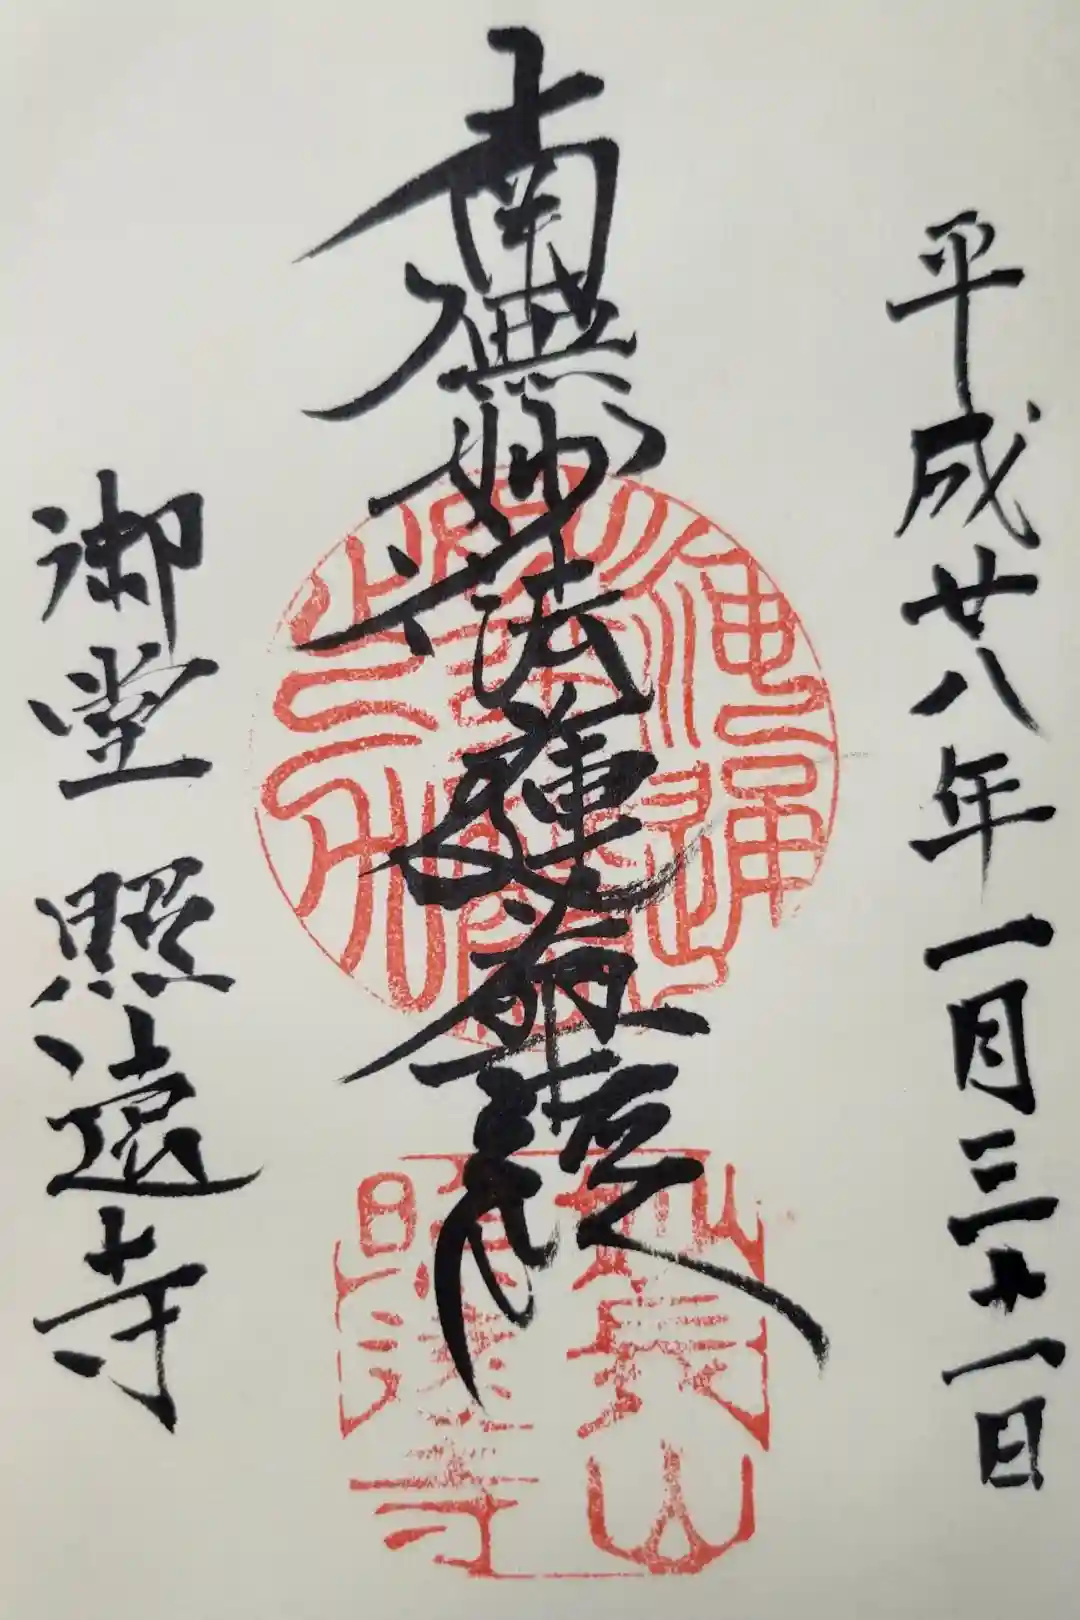 平成廿八年一月三十一日
南無妙法蓮華経
御堂 照遠寺
山
照遠寺